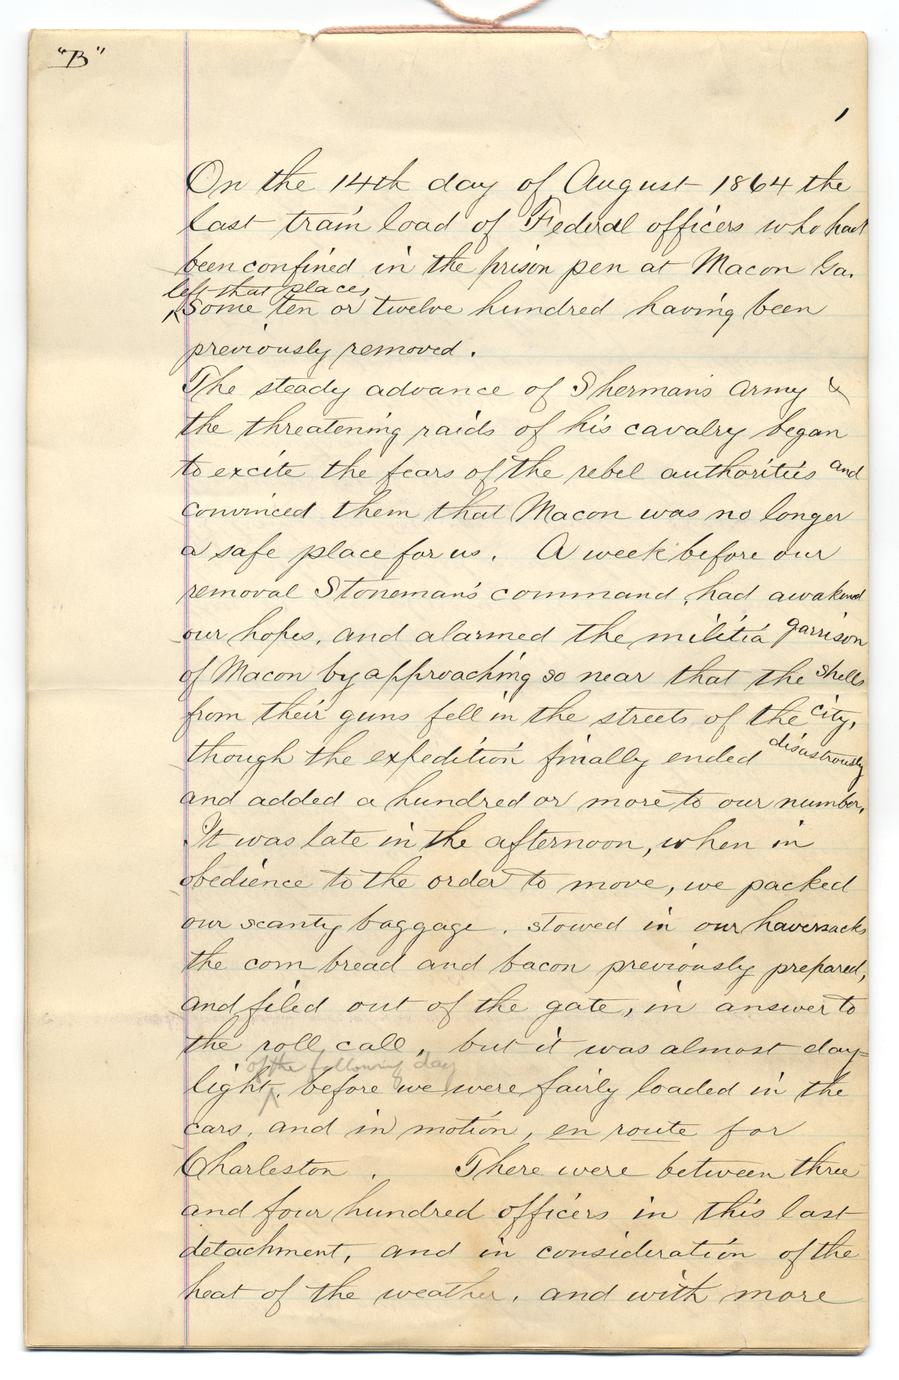 "B"
1
On the 14th day of August 1864 the
last train load of Federal officers who had
been confined in the prison pen at Macon Ga.
left that place,
some ten or twelve hundred having been
previously removed.
The steady advance of Sherman's army &
the threatening raids of his cavalry began
to excite the fears of the rebel authorities and
convinced them that Macon was no longer
a safe place for us. A week before our
removal Stoneman's command, had awakened
our hopes, and alarmed the militia garrison
of Macon by approaching so near that the shells
from their guns fell in the streets of the city,
though the expedition finally ended disastrously
and added a hundred or more to our number.
It was late in the afternoon, when in
obedience to the order to move, we packed
our scanty baggage, stowed in our haversacks
the corn bread and bacon previously prepared,
and filed out of the gate, in answer to
the roll call, but it was almost day-
of the following day
light, before we were fairly loaded in the
cars, and in motion, en route for
Charleston. There were between three
and four hundred officers in this last
detachment, and in consideration of the
heat of the weather, and with more